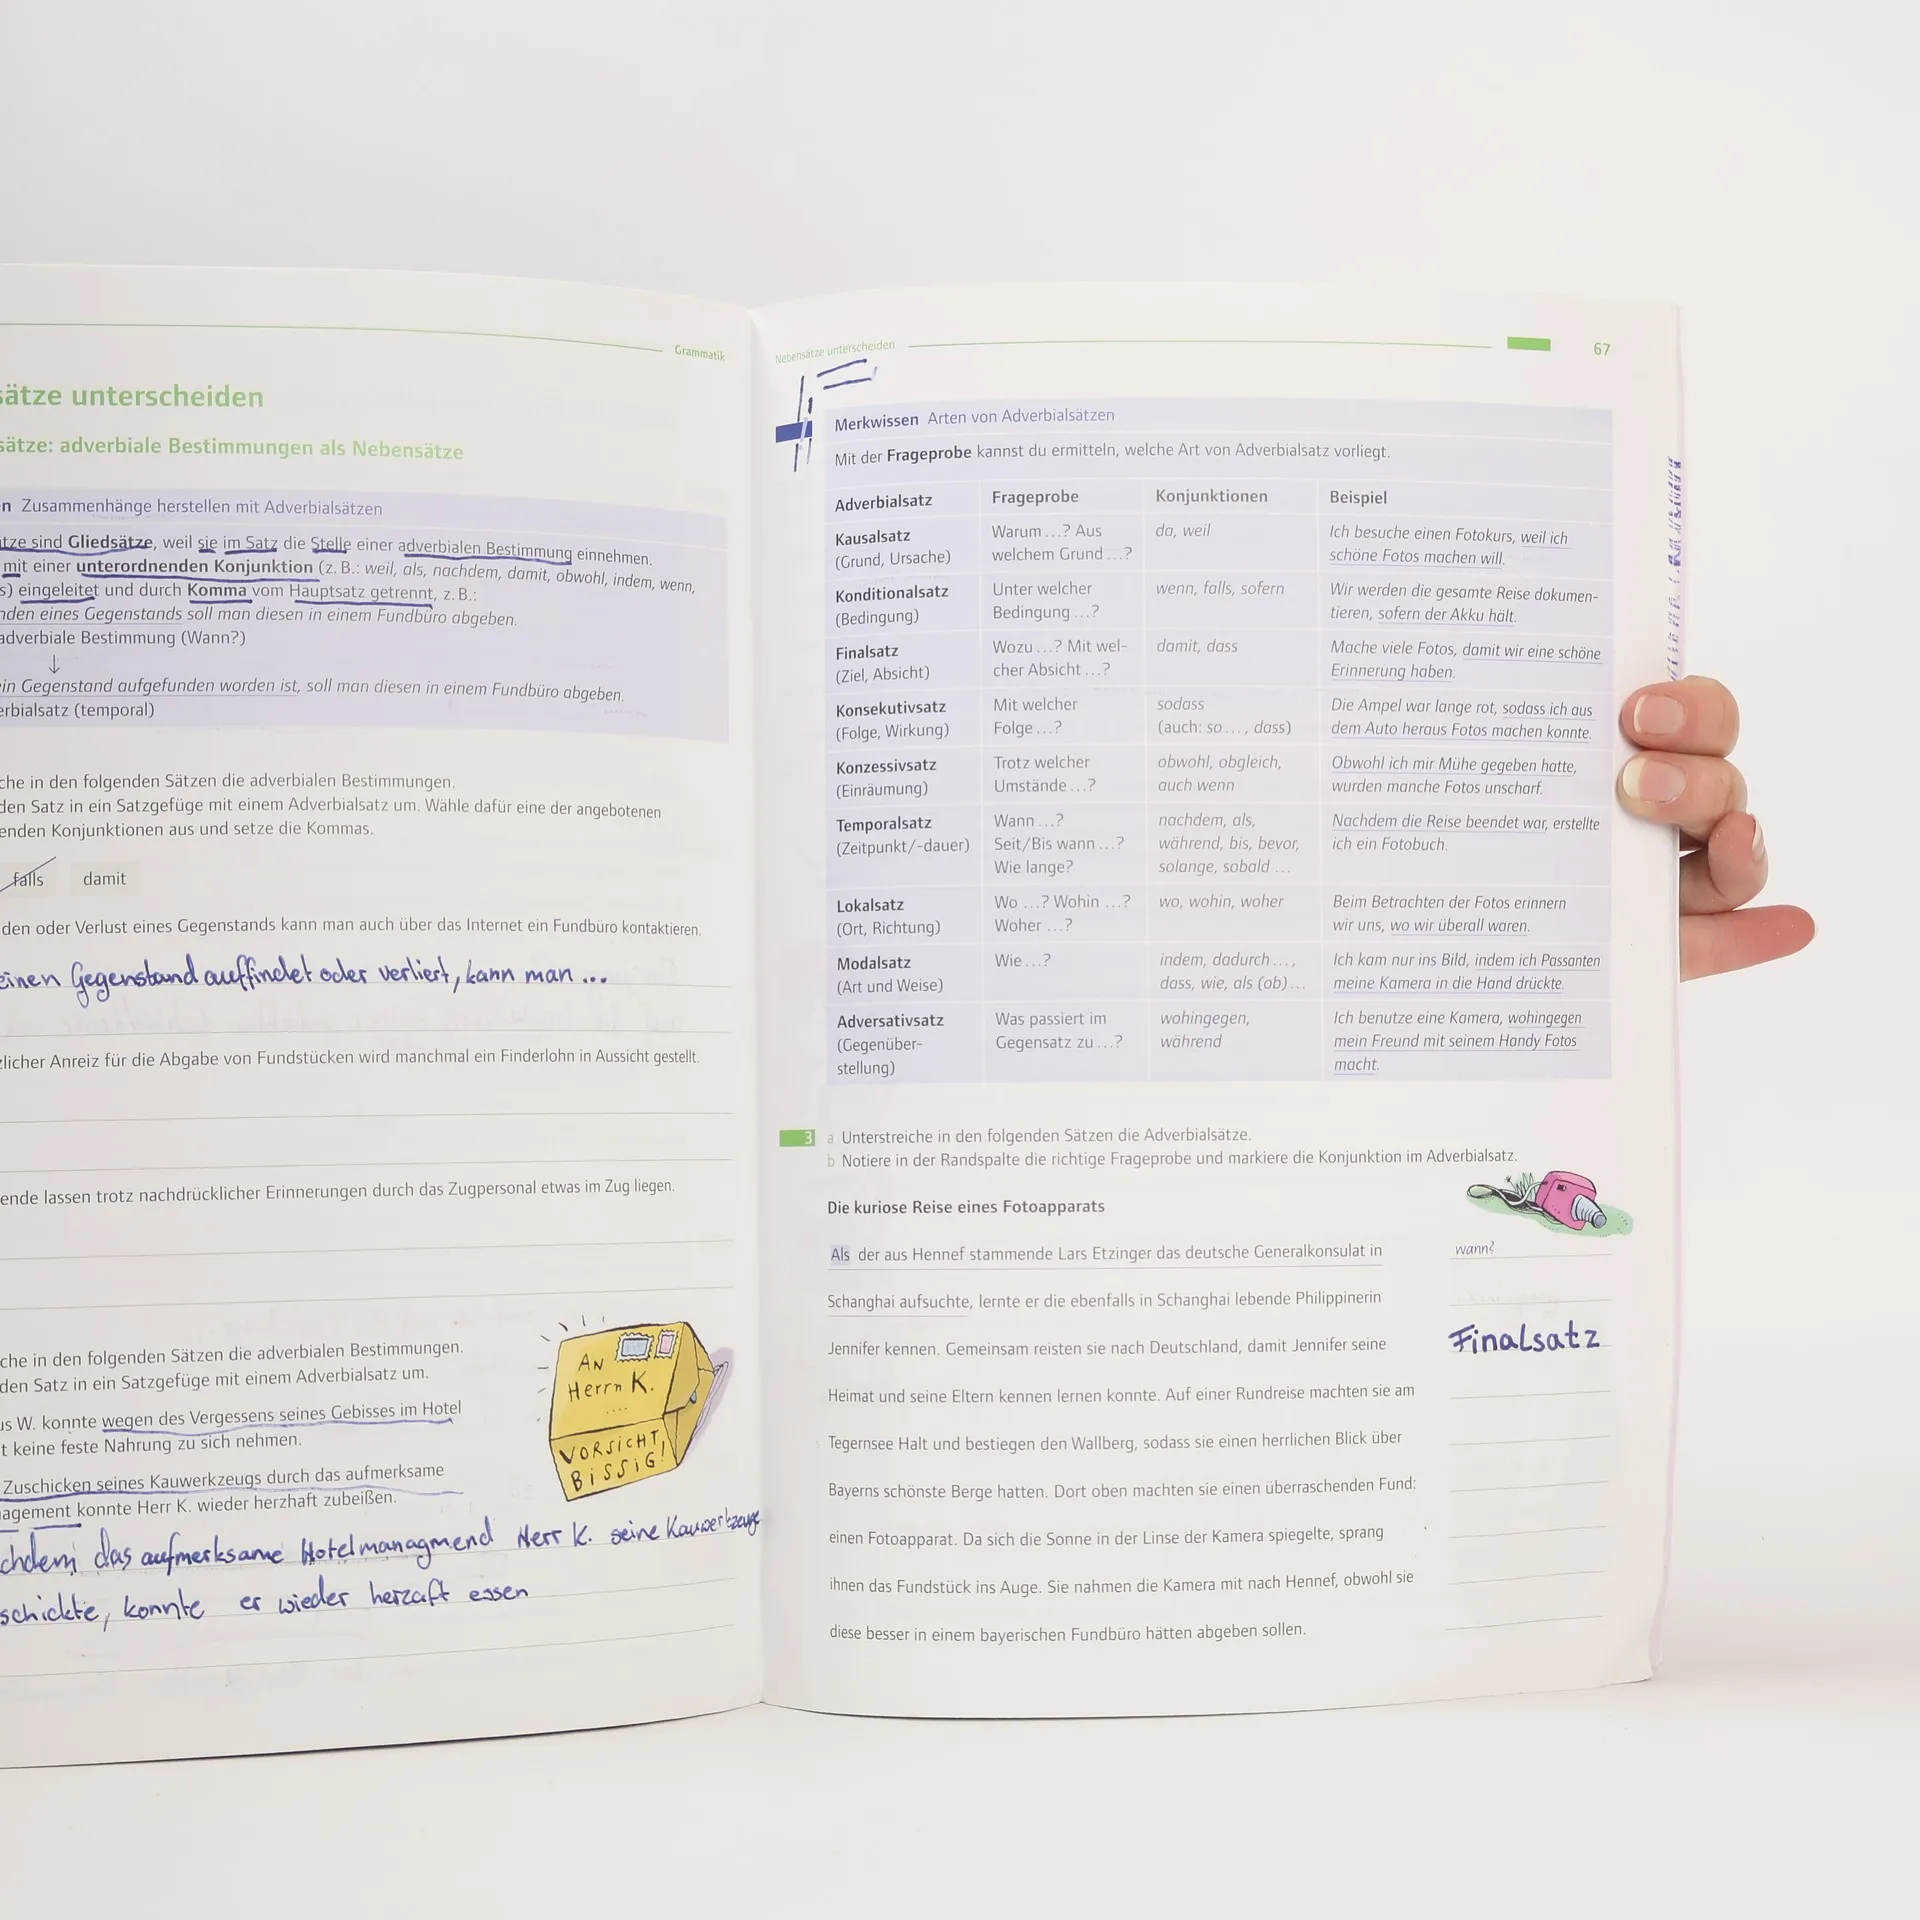 Grammatik
sätze unterscheiden
sätze: adverbiale Bestimmungen als Nebensätze
n Zusammenhänge herstellen mit Adverbialsätzen
tze sind Gliedsätze, weil sie im Satz die Stelle einer adverbialen Bestimmung einnehmen.
mit einer unterordnenden Konjunktion (z. B.: weil, als, nachdem, damit, obwohl, indem, wenn,
s) eingeleitet und durch Komma vom Hauptsatz getrennt, z. B.:
nden eines Gegenstands soll man diesen in einem Fundbüro abgeben.
adverbiale Bestimmung (Wann?)
↓
ein Gegenstand aufgefunden worden ist, soll man diesen in einem Fundbüro abgeben.
erbialsatz (temporal)
che in den folgenden Sätzen die adverbialen Bestimmungen.
den Satz in ein Satzgefüge mit einem Adverbialsatz um. Wähle dafür eine der angebotenen
enden Konjunktionen aus und setze die Kommas.
falls damit
den oder Verlust eines Gegenstands kann man auch über das Internet ein Fundbüro kontaktieren.
einen Gegenstand auffindet oder verliert, kann man ...
zlicher Anreiz für die Abgabe von Fundstücken wird manchmal ein Finderlohn in Aussicht gestellt.
ende lassen trotz nachdrücklicher Erinnerungen durch das Zugpersonal etwas im Zug liegen.
che in den folgenden Sätzen die adverbialen Bestimmungen.
den Satz in ein Satzgefüge mit einem Adverbialsatz um.
us W. konnte wegen des Vergessens seines Gebisses im Hotel
t keine feste Nahrung zu sich nehmen.
Zuschicken seines Kauwerkzeugs durch das aufmerksame
agement konnte Herr K. wieder herzhaft zubeißen.
AN
Herrn K.
....
VORSICHT,
BISSIG!
chdem das aufmerksame Hotelmanagmend Herr K. seine Kauwerkzeuge
schickte, konnte er wieder herzaft essen
Nebensätze unterscheiden
67
Merkwissen Arten von Adverbialsätzen
Mit der Frageprobe kannst du ermitteln, welche Art von Adverbialsatz vorliegt.
Adverbialsatz Frageprobe Konjunktionen Beispiel
Kausalsatz Warum ...? Aus da, weil Ich besuche einen Fotokurs, weil ich
(Grund, Ursache) welchem Grund ...? schöne Fotos machen will.
Konditionalsatz Unter welcher wenn, falls, sofern Wir werden die gesamte Reise dokumen-
(Bedingung) Bedingung ...? tieren, sofern der Akku hält.
Finalsatz Wozu ...? Mit wel- damit, dass Mache viele Fotos, damit wir eine schöne
(Ziel, Absicht) cher Absicht ...? Erinnerung haben.
Konsekutivsatz Mit welcher sodass Die Ampel war lange rot, sodass ich aus
(Folge, Wirkung) Folge ...? (auch: so ..., dass) dem Auto heraus Fotos machen konnte.
Konzessivsatz Trotz welcher obwohl, obgleich, Obwohl ich mir Mühe gegeben hatte,
(Einräumung) Umstände ...? auch wenn wurden manche Fotos unscharf.
Temporalsatz Wann ...? nachdem, als, Nachdem die Reise beendet war, erstellte
(Zeitpunkt/-dauer) Seit/Bis wann ...? während, bis, bevor, ich ein Fotobuch.
Wie lange? solange, sobald ...
Lokalsatz Wo ...? Wohin ...? wo, wohin, woher Beim Betrachten der Fotos erinnern
(Ort, Richtung) Woher ...? wir uns, wo wir überall waren.
Modalsatz Wie ...? indem, dadurch ..., Ich kam nur ins Bild, indem ich Passanten
(Art und Weise) dass, wie, als (ob) ... meine Kamera in die Hand drückte.
Adversativsatz Was passiert im wohingegen, Ich benutze eine Kamera, wohingegen
(Gegenüber- Gegensatz zu ...? während mein Freund mit seinem Handy Fotos
stellung) macht.
3 a Unterstreiche in den folgenden Sätzen die Adverbialsätze.
b Notiere in der Randspalte die richtige Frageprobe und markiere die Konjunktion im Adverbialsatz.
Die kuriose Reise eines Fotoapparats
Als der aus Hennef stammende Lars Etzinger das deutsche Generalkonsulat in wann?
Schanghai aufsuchte, lernte er die ebenfalls in Schanghai lebende Philippinerin
Jennifer kennen. Gemeinsam reisten sie nach Deutschland, damit Jennifer seine Finalsatz
Heimat und seine Eltern kennen lernen konnte. Auf einer Rundreise machten sie am
Tegernsee Halt und bestiegen den Wallberg, sodass sie einen herrlichen Blick über
Bayerns schönste Berge hatten. Dort oben machten sie einen überraschenden Fund:
einen Fotoapparat. Da sich die Sonne in der Linse der Kamera spiegelte, sprang
ihnen das Fundstück ins Auge. Sie nahmen die Kamera mit nach Hennef, obwohl sie
diese besser in einem bayerischen Fundbüro hätten abgeben sollen.